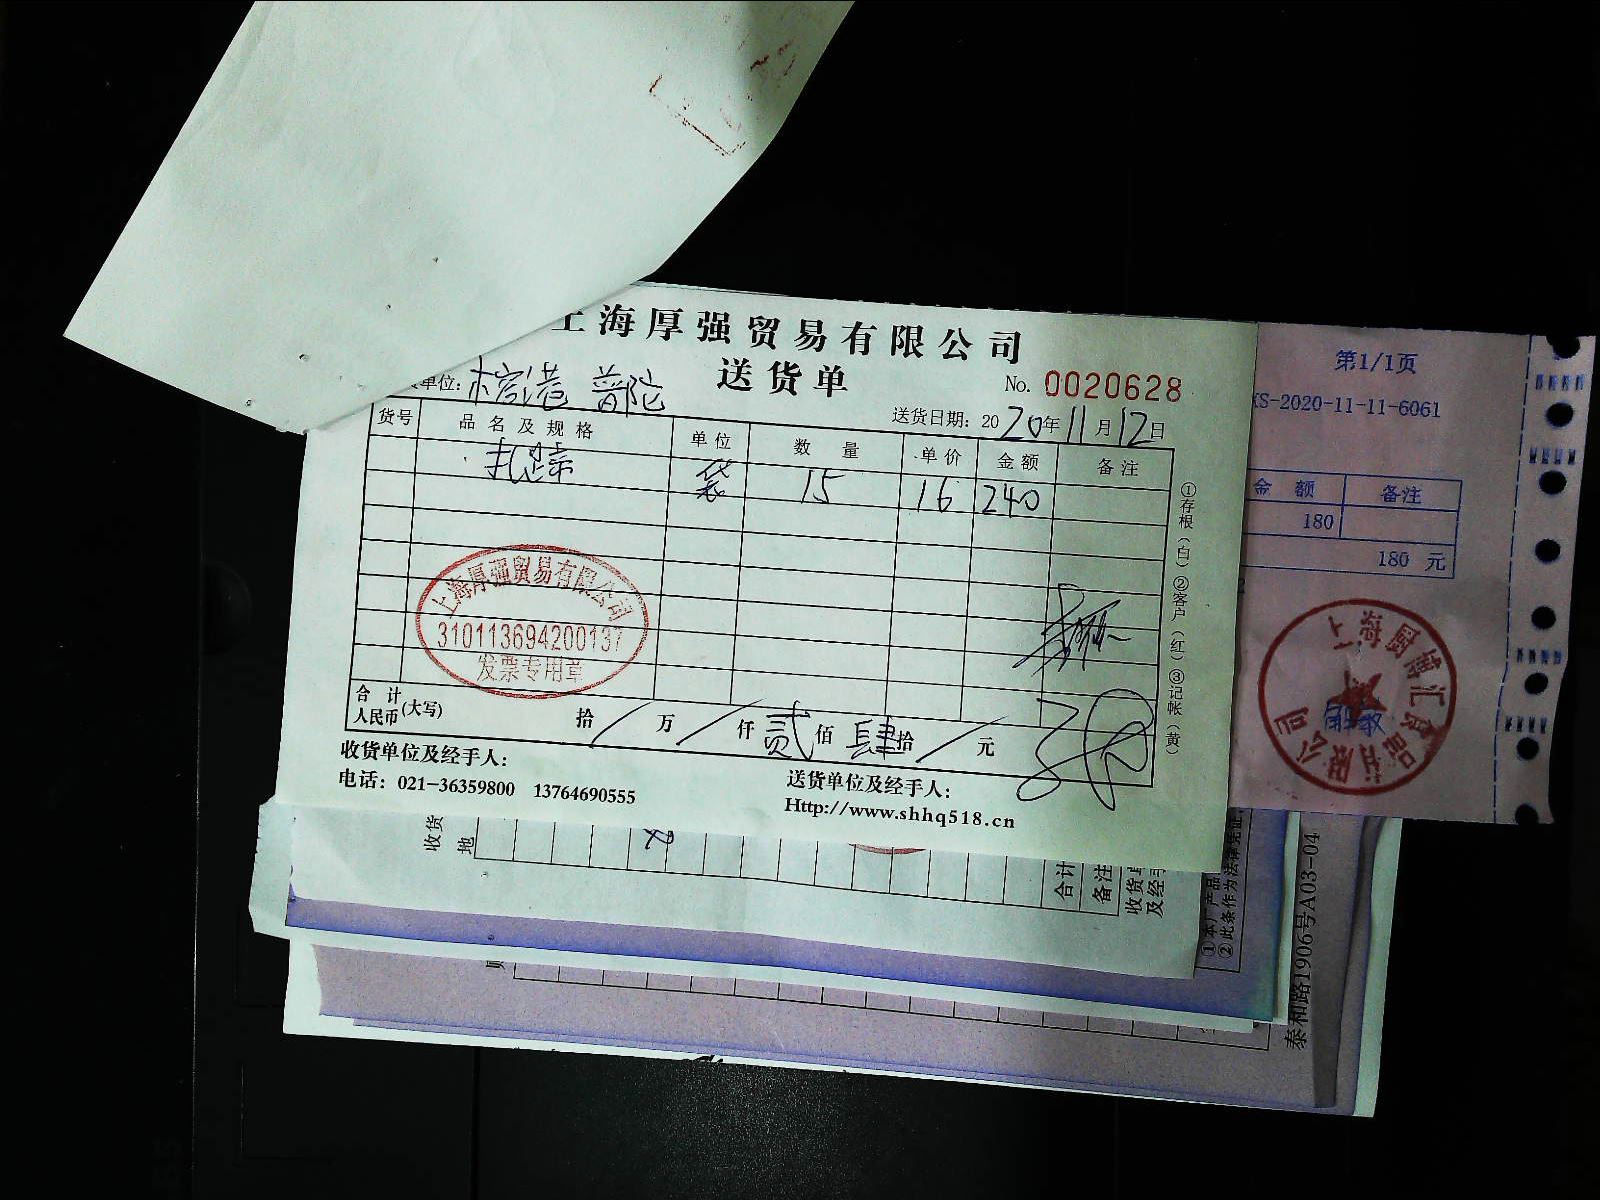 上海厚强贸易有限公司
送货单
No. 0020628
单位： 港 普陀
送货日期：2020年11月12日
货号 品名及规格 单位 数量 单价 金额 备注
袋 15 16 240
①存根（白）②客户（红）③记帐（黄）
上海厚强贸易有限公司
310113694200137
发票专用章
合计人民币(大写) 拾/万/仟贰佰肆拾/元
收货单位及经手人：
电话：021-36359800 13764690555
送货单位及经手人：
Http://www.shhq518.cn
第1/1页
XS-2020-11-11-6061
金额 备注
180
180 元
上海 汇食品有限公司
收货
地
合计
备注
收货单
及经手
①本厂产品
②此条作为法律凭证
泰和路1906号A03-04